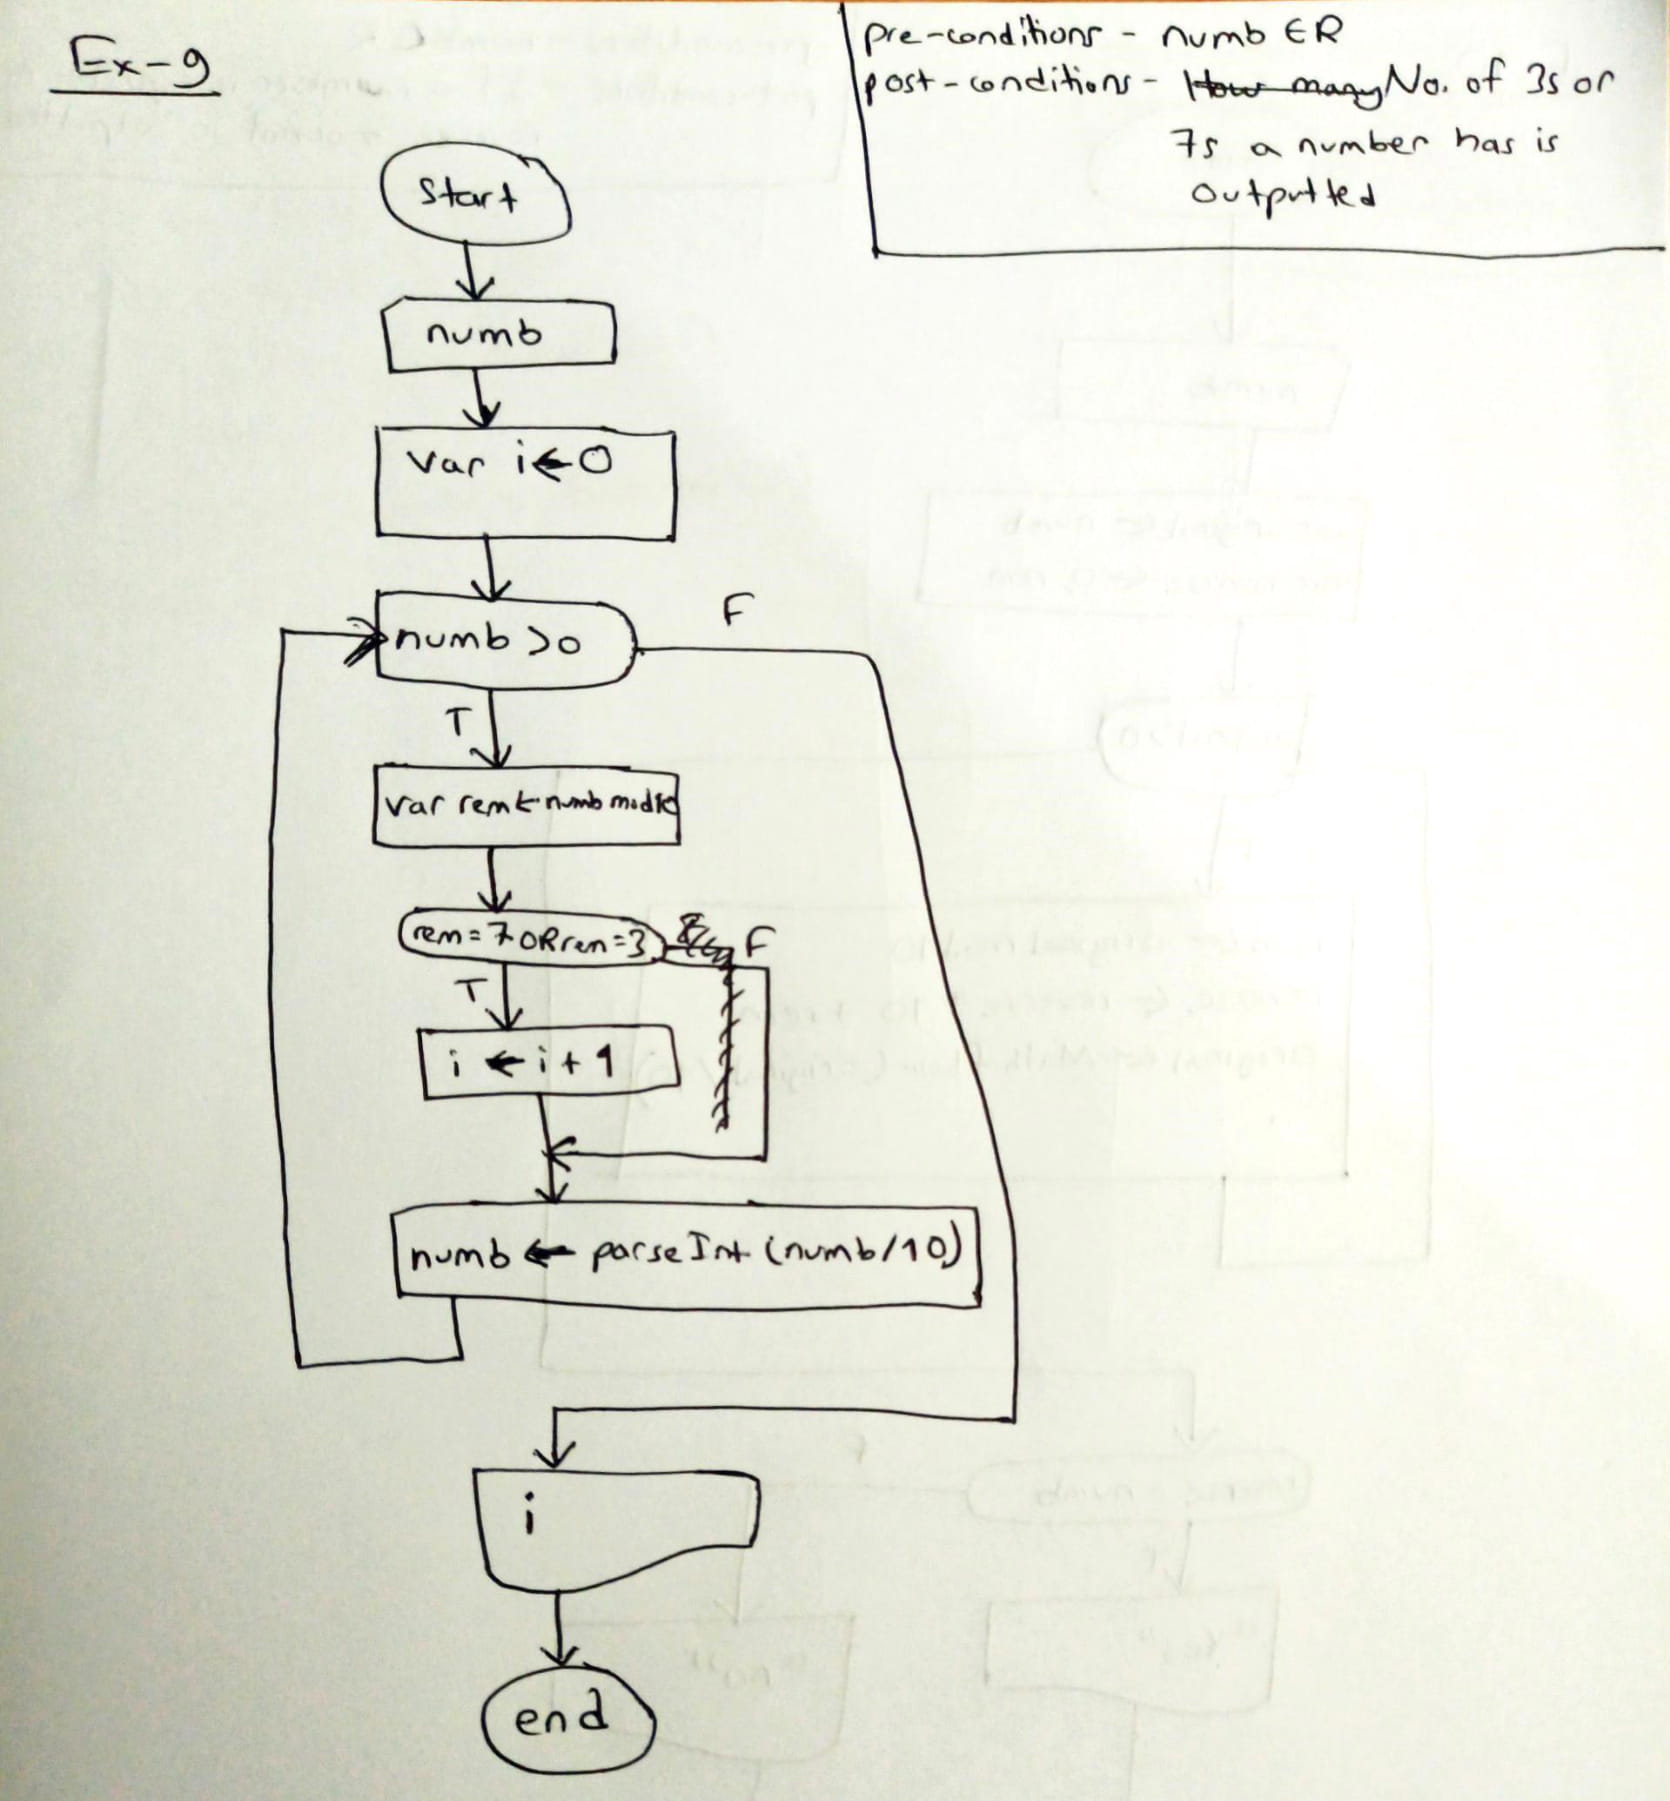 Ex-9
pre-conditions - numb ∈ R
post-conditions - How many No. of 3s or
7s a number has is
outputted
Start
numb
var i ← 0
numb > 0
F
T
var rem ← numb mod 10
rem = 7 OR rem = 3
F
T
i ← i + 1
numb ← parseInt (numb/10)
i
end